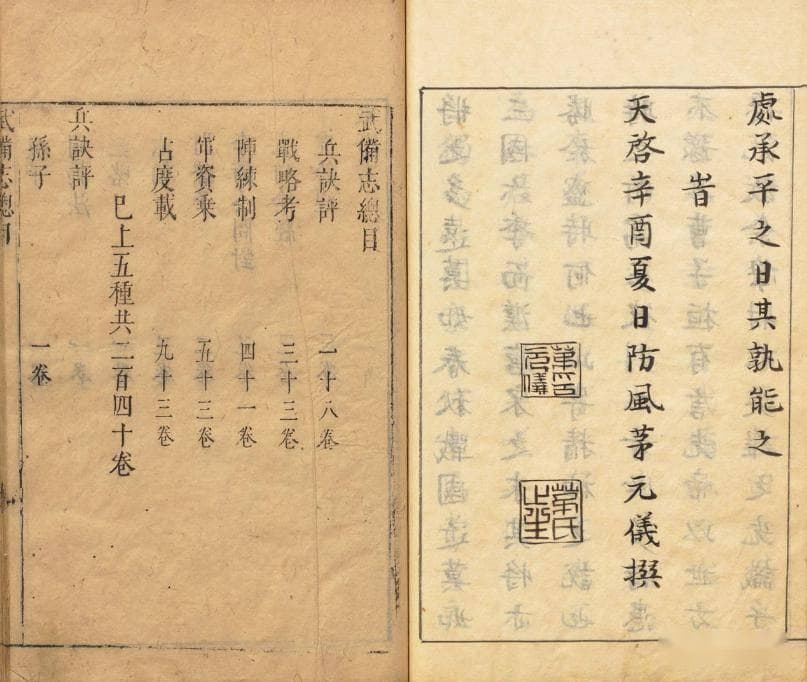 處承平之日其孰能之
旹
天啓辛酉夏日防風茅元儀撰
茅印元儀
茅氏止生
武備志總目
兵訣評 一十八卷
戰略考 三十三卷
陣練制 四十一卷
軍資乘 五十三卷
占度載 九十三卷
已上五種共二百四十卷
兵訣評
孫子 一卷
武備志總目